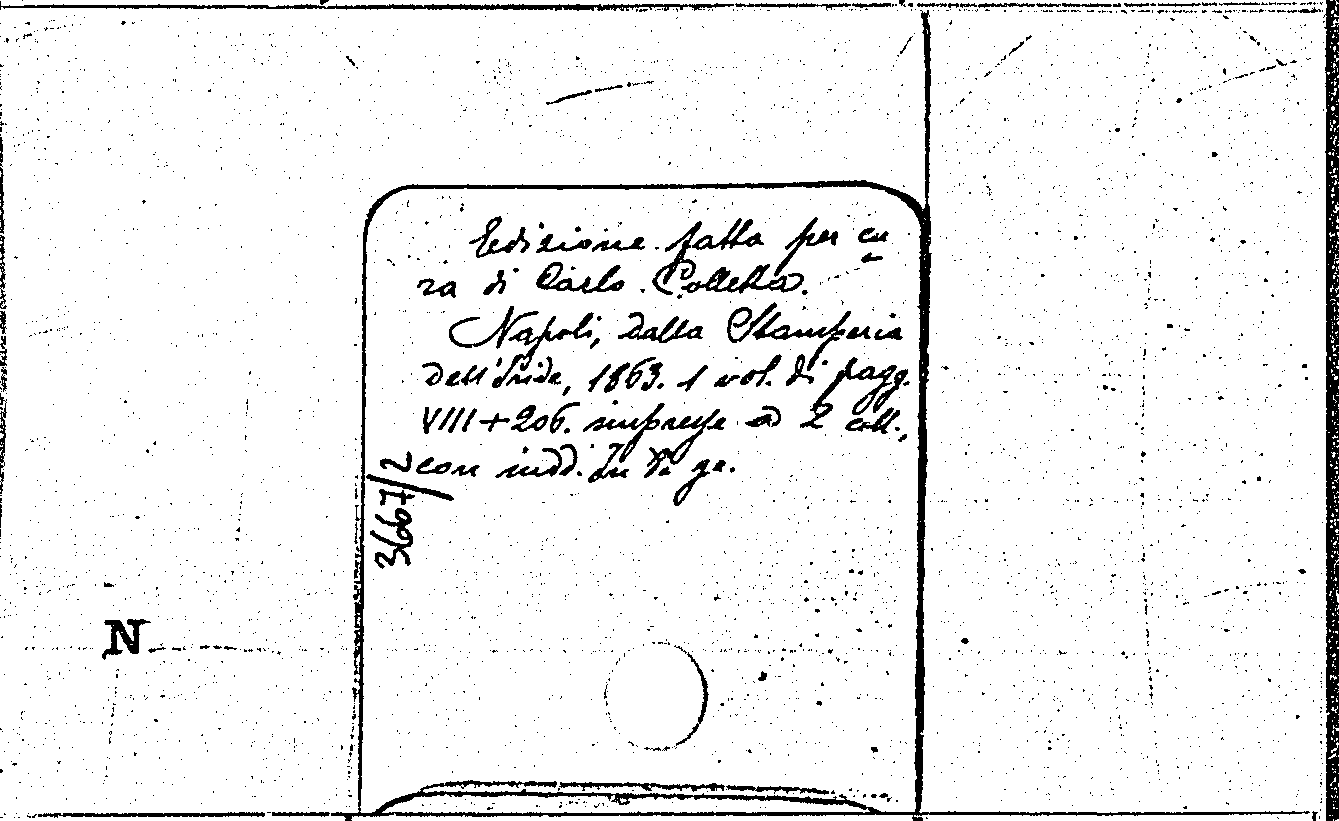 Edizione fatta per cu
ra di Carlo Colletta.
Napoli, dalla Stamperia
dell'Iride, 1863. 1 vol. di pagg.
VIII+206. impresse a 2 coll.,
con indd. In di ga.
3667/2
N